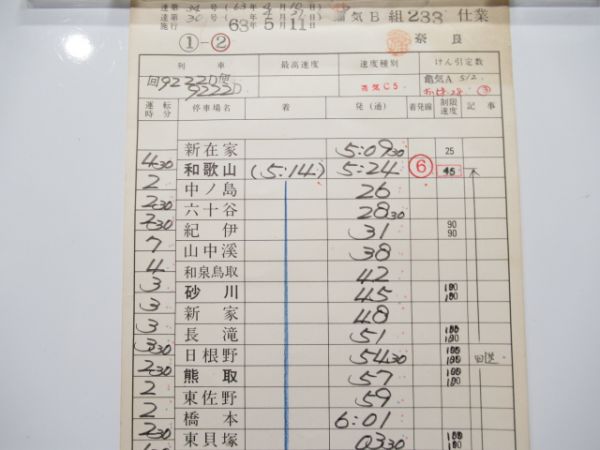 達第34号(63年4月10日)
達第30号(年月日)
施行63年5月11日 気B組233仕業
①-② 奈良
列車 最高速度 速度種別 けん引定数
回9222D 9222D 亀気A 5/2
運転時分 停車場名 着 発(通) 着発線 制限速度 記事
新在家 5:09 30 25
4 30 和歌山 (5:14) 5:24 ⑥ 45
2 中ノ島 26
2 30 六十谷 28 30
2 30 紀伊 31 90 90
7 山中溪 38
4 和泉鳥取 42
3 砂川 45 100 100
3 新家 48
3 長滝 51 100 100
3 30 日根野 54 30 100 100 回送
2 30 熊取 57 100 100
2 東佐野 59
2 橋本 6:01
2 30 東貝塚 03 30 100 100